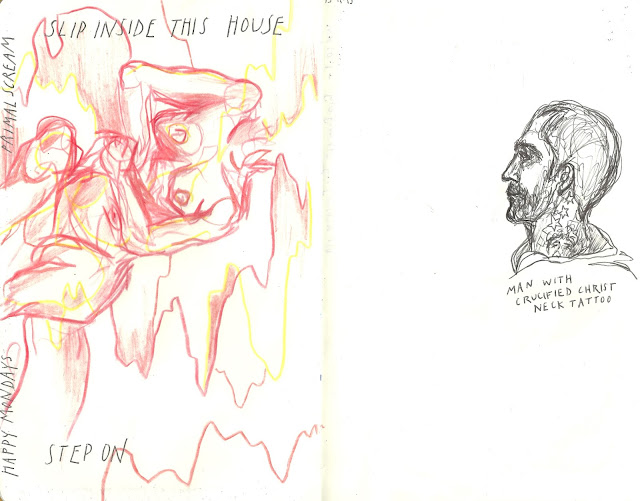 SLIP INSIDE THIS HOUSE
PRIMAL SCREAM
HAPPY MONDAYS
STEP ON
MAN WITH
CRUCIFIED CHRIST
NECK TATTOO